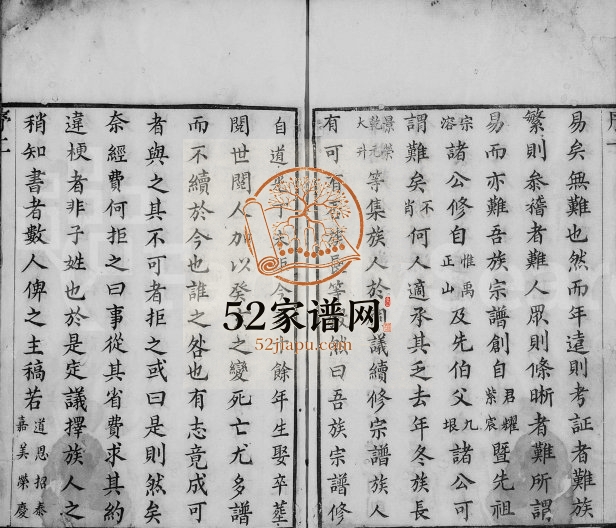 易矣無難也然而年遠則考証者難族
繁則叅稽者難人眾則條晰者難所謂
易而亦難吾族宗譜創自君耀紫宸暨先祖
宗溶諸公修自惟禹正山及先伯父九垠諸公可
謂難矣不肖何人適承其乏去年冬族長
景榮乾元大升等集族人於議續修宗譜族人
有可有長等烈曰吾族宗譜修
自道光丁未今餘年生娶卒塟
閱世閱人加以癸之變死亡尤多譜
而不續於今也誰之咎也有志竟成可
者與之其不可者拒之或曰是則然矣
奈經費何拒之曰事從其省費求其約
違梗者非子姓也於是定議擇族人之
稍知書者數人俾之主稿若道恩招泰嘉美榮慶
序二
52家谱网
52jiapu.com